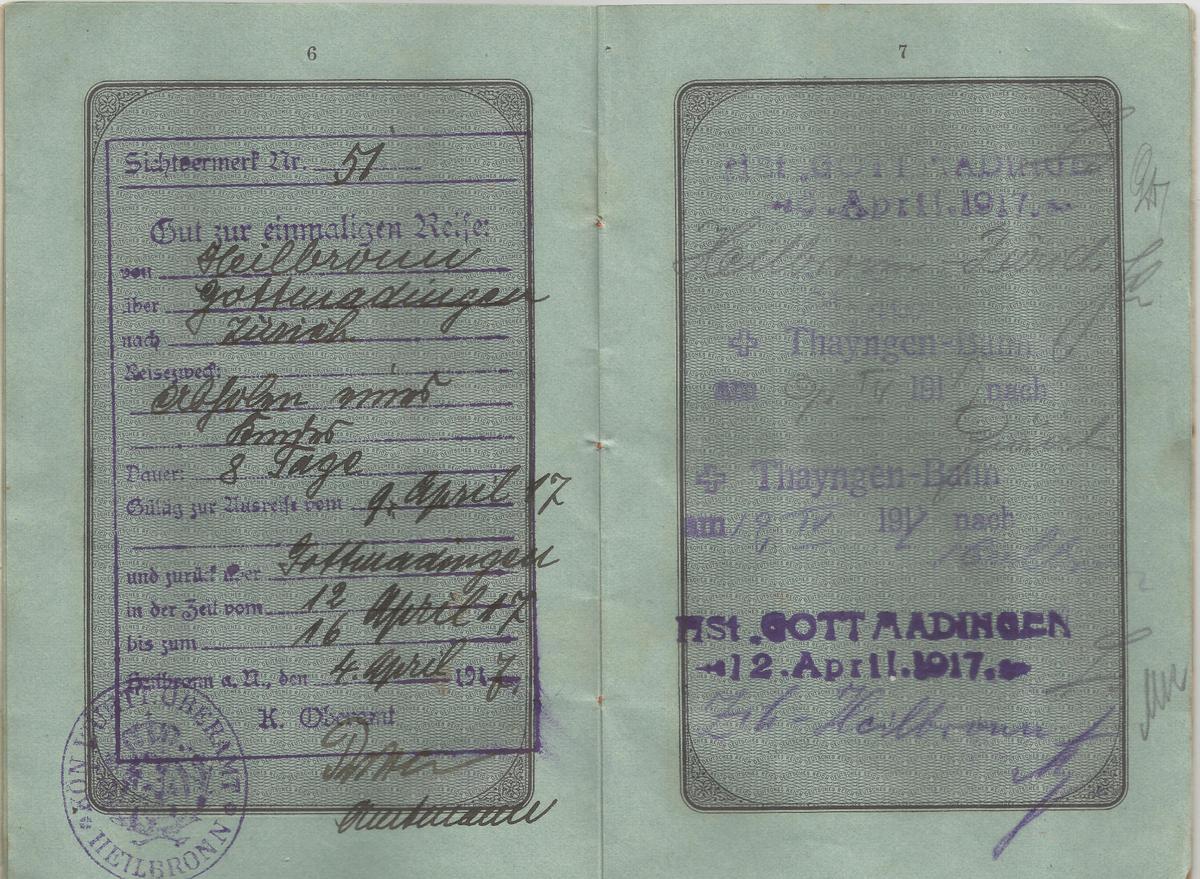 6
Sichtvermerk Nr. 51
Gut zur einmaligen Reise:
von Heilbronn
über Gottmadingen
nach Zürich
Reisezweck:
Abholen eines
Kindes
Dauer: 8 Tage
Gültig zur Ausreise vom 9. April 17
und zurück über Gottmadingen
in der Zeit vom 12
bis zum 16 April 17
Heilbronn a. N., den 4. April 1917.
K. Oberamt
Amtmann
KÖN. WÜRTT. OBERAMT
HEILBRONN
7
HSt. GOTTMADINGEN
April.1917.
Heilbronn - Zürich
Thayngen-Bahn
am 9. IV 191 nach
Thayngen-Bahn
am 12 IV 1917 nach
HSt. GOTTMADINGEN
12.April.1917.
Zch - Heilbronn